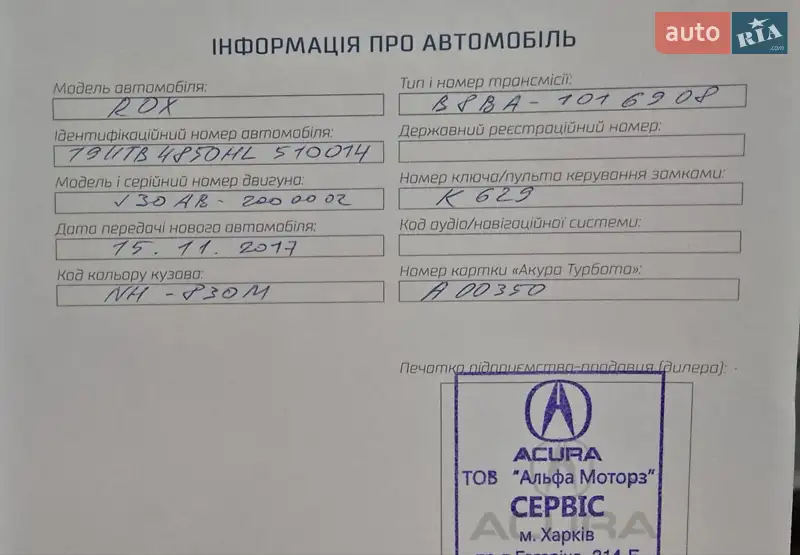 auto RIA .com
ІНФОРМАЦІЯ ПРО АВТОМОБІЛЬ
Модель автомобіля:
RDX
Ідентифікаційний номер автомобіля:
19UTB4850HL510014
Модель і серійний номер двигуна:
J30AB-2000002
Дата передачі нового автомобіля:
15.11.2017
Код кольору кузова:
NH-830M
Тип і номер трансмісії:
B8BA-1016908
Державний реєстраційний номер:
Номер ключа/пульта керування замками:
K629
Код аудіо/навігаційної системи:
Номер картки «Акура Турбота»:
A00350
Печатка підприємства-продавця (дилера):
ACURA
ТОВ "Альфа Моторз"
СЕРВІС
ACURA
м. Харків